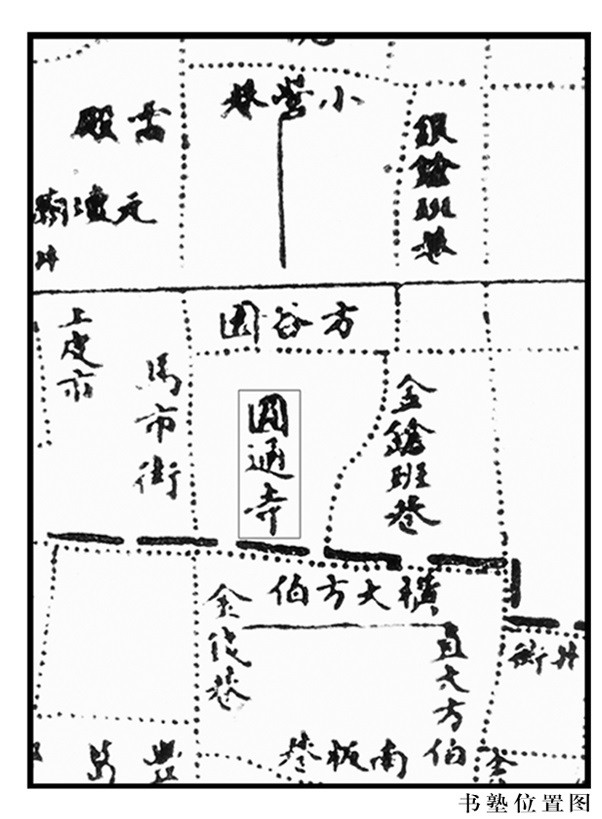 小營巷
銀鎗班巷
殿
元
方谷園
上皮市
馬市街
圓通寺
金鎗班巷
橫大方伯
直大方伯
井街
南板巷
书塾位置图